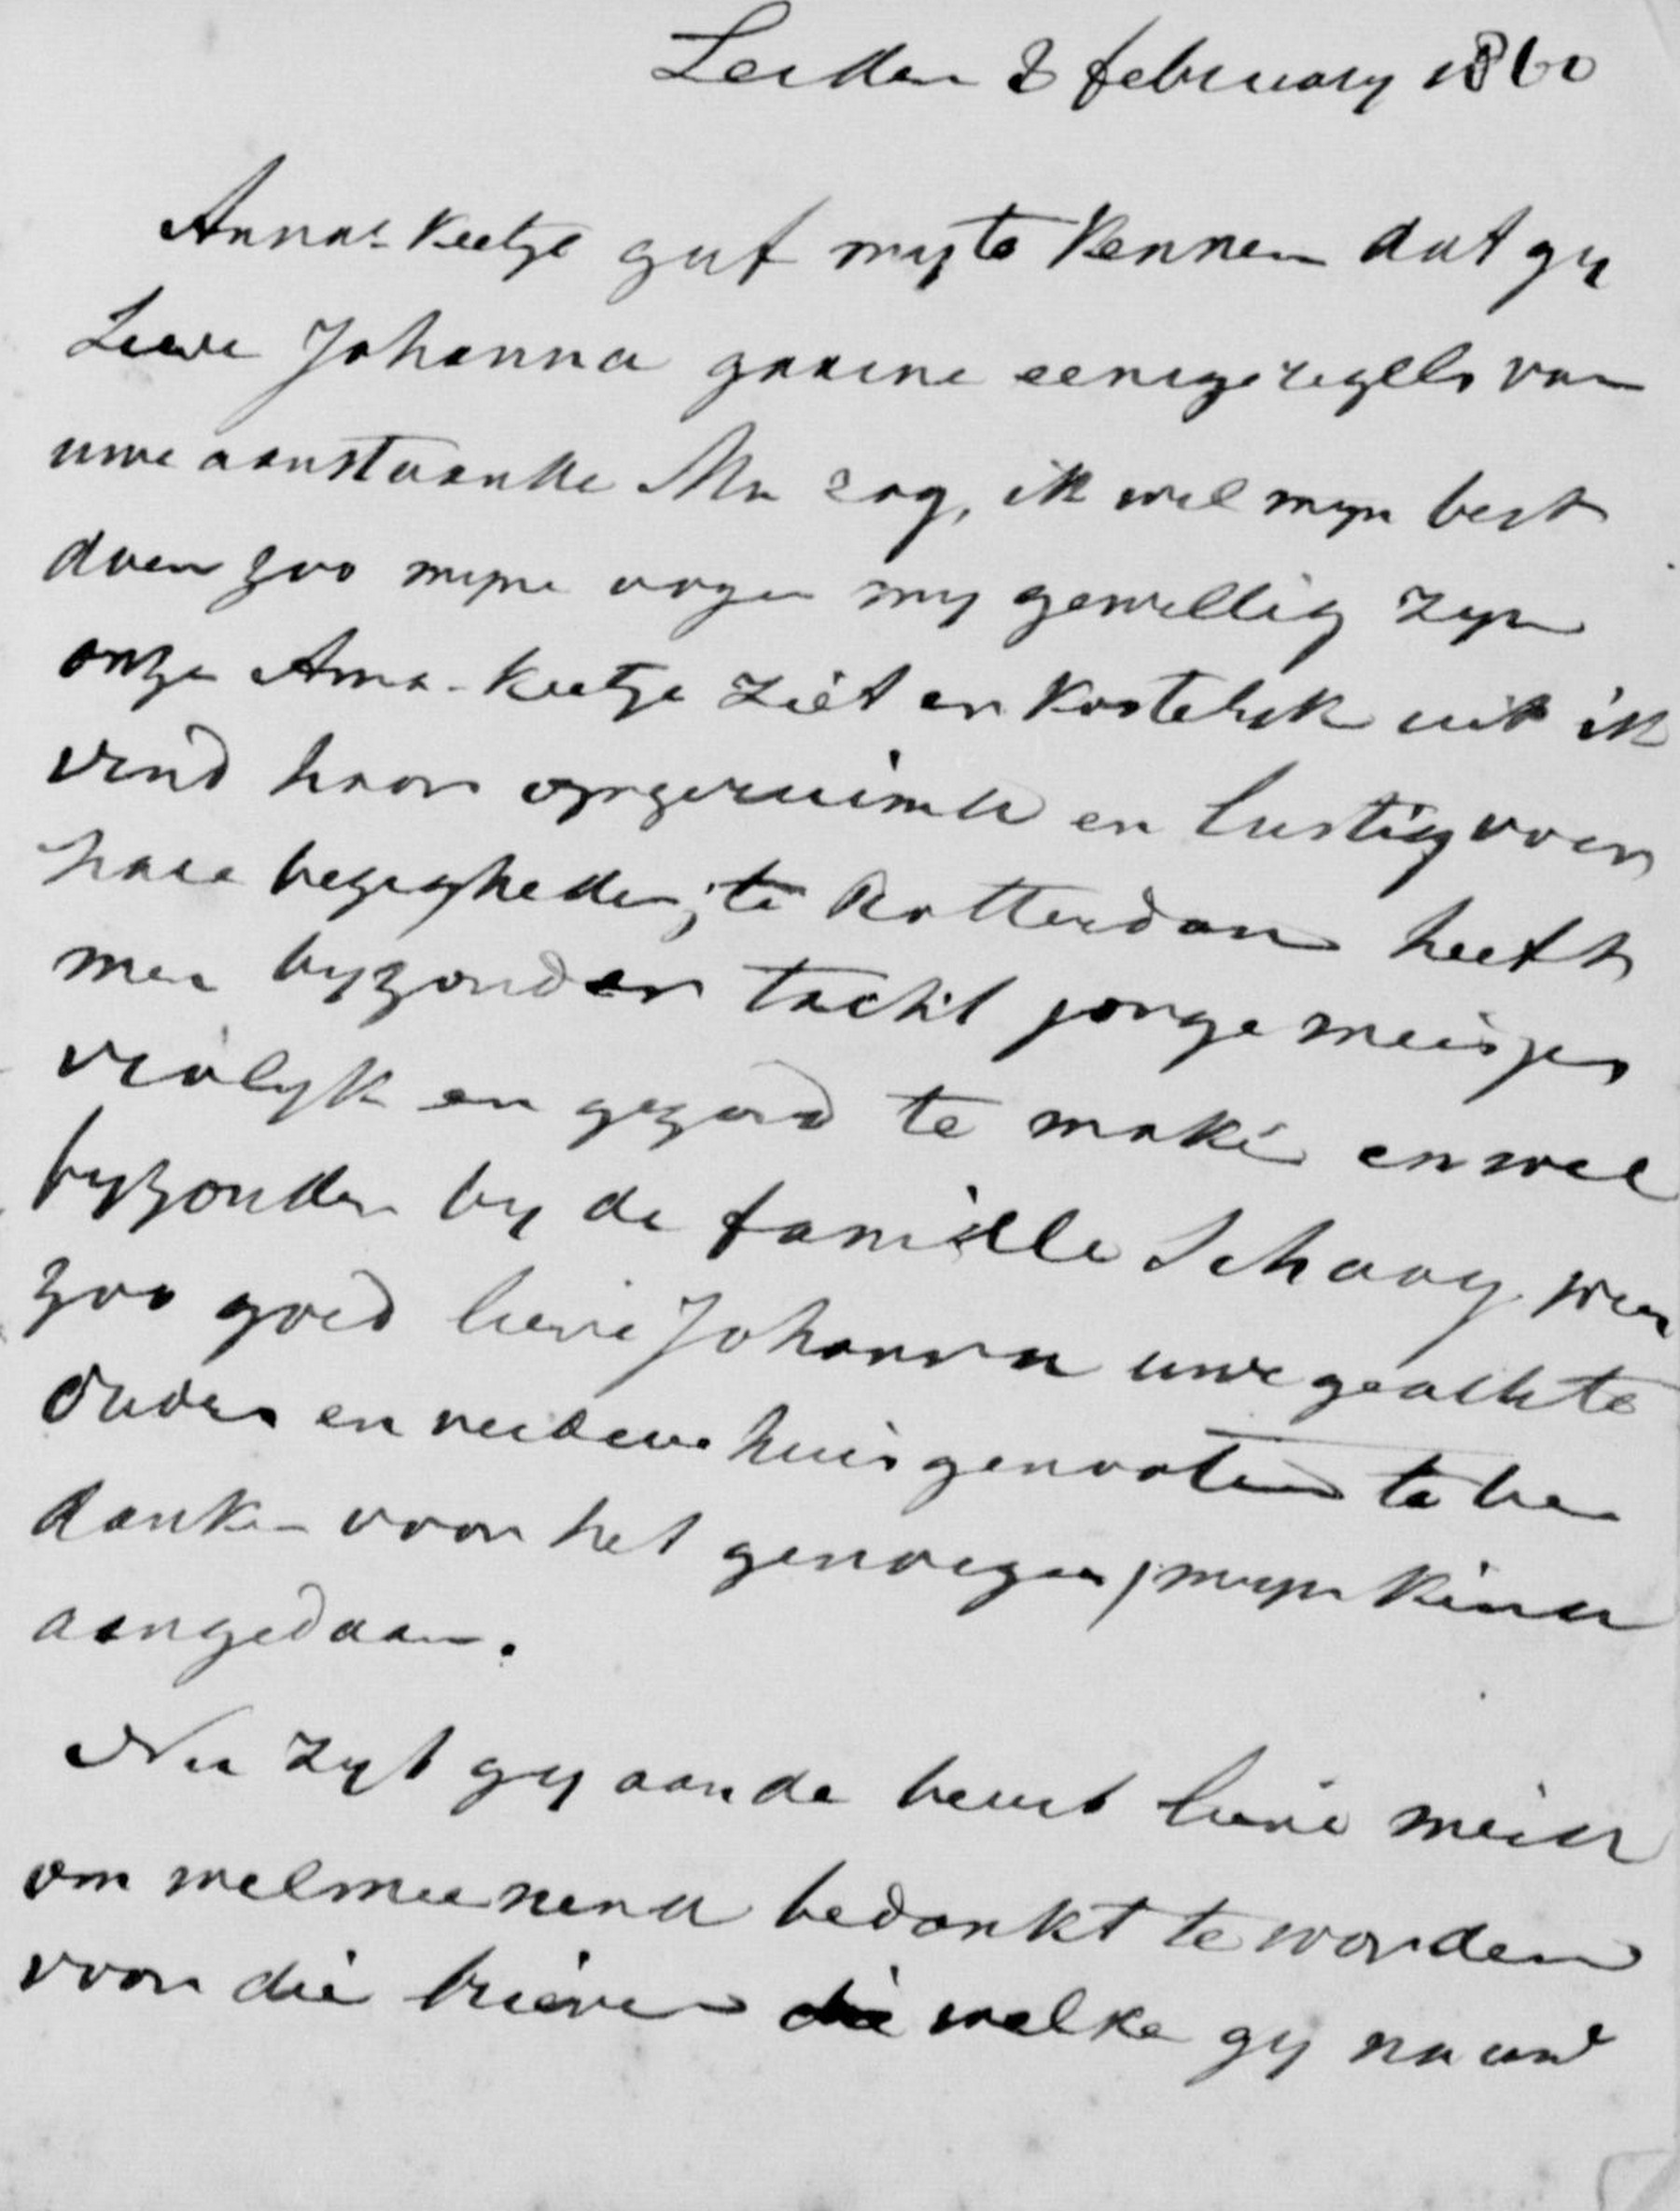 Leiden 8 february 1860
Anna-Keetje gaf my te kennen dat gy
Lieve Johanna gaarne eenige regels van
uwe aanstaande Ma zag, ik wil myn best
doen zoo myne oogen my gewillig zyn
onze Anna-Keetje ziet er kostelyk uit ik
vind haar opgeruimd en lustig voor
hare bezigheden; te Rotterdam heeft
men byzonder tackt jonge meisjes
vrolyk en gezond te maken en wel
byzonder by de famille Schaay wees
zoo goed lieve Johanna uwe geachte
ouders en verdere huisgenooten te be
danken voor het genoegen, myn kind
aangedaan.
Nu zyt gy aan de beurt lieve meid
om welmeenend bedankt te worden
voor die brieven welke gy na uw